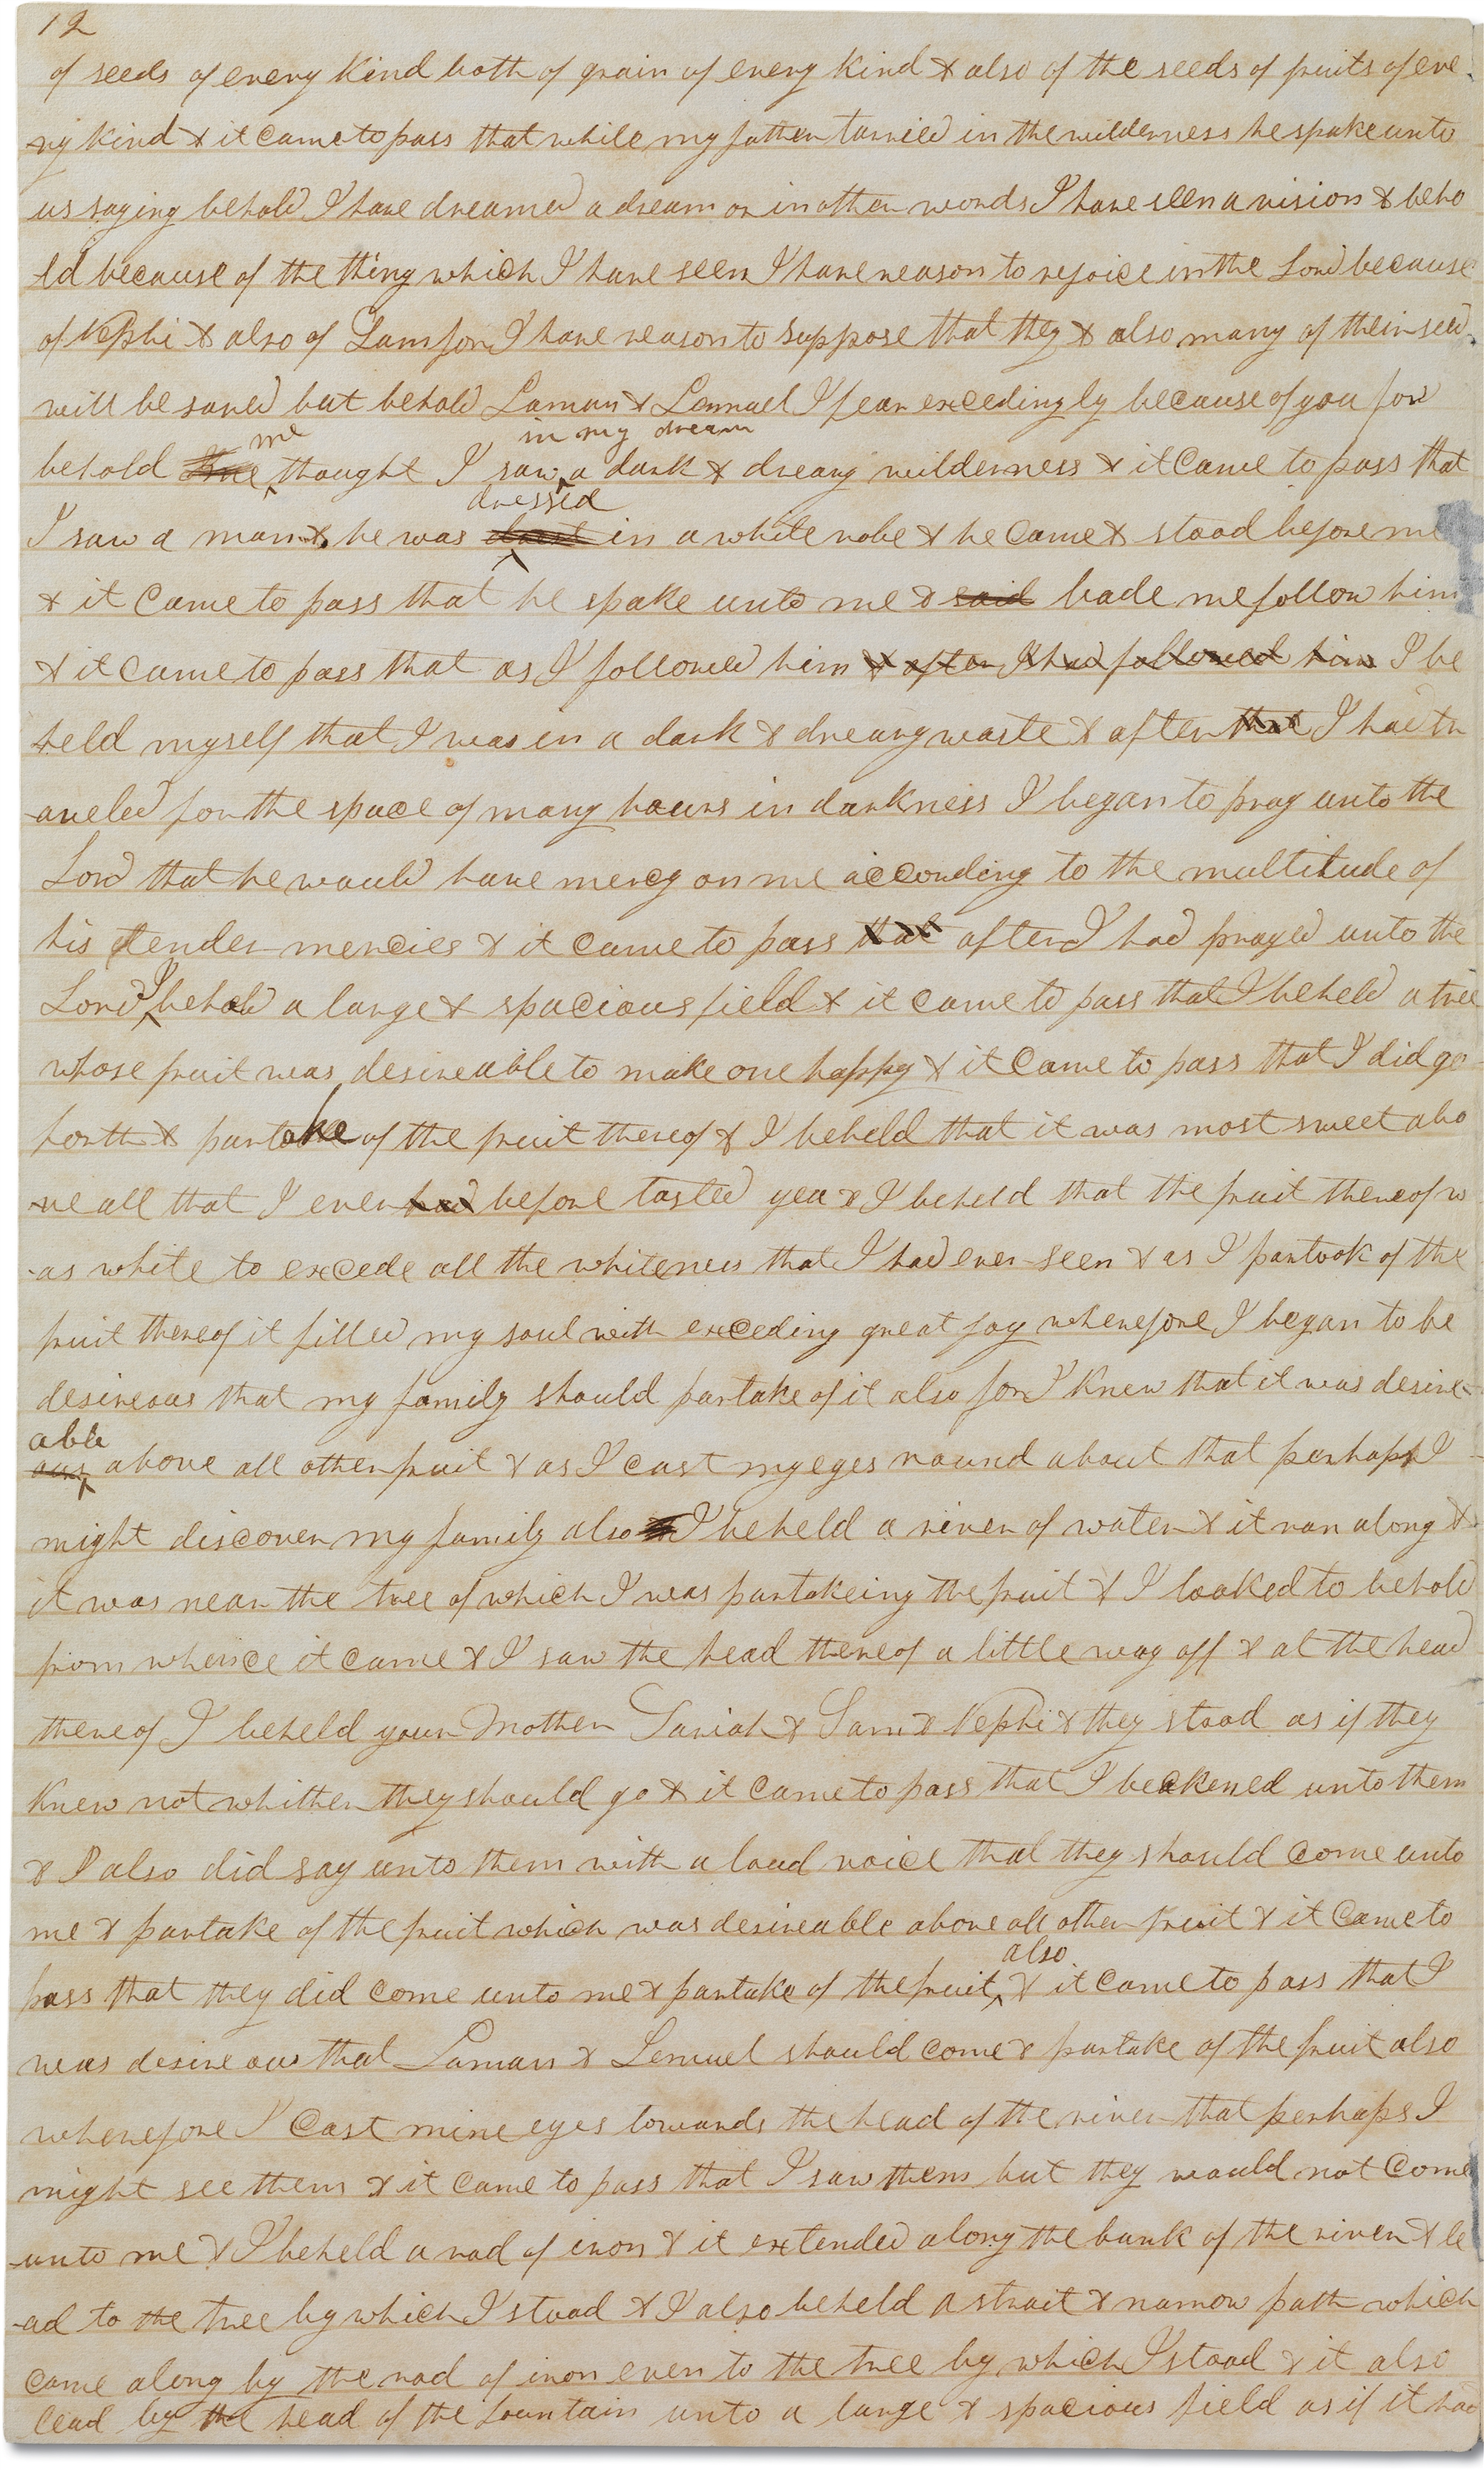 12
of seeds of every kind both of grain of every kind & also of the seeds of fruits of eve
ry kind & it came to pass that while my father tarried in the wilderness he spake unto
us saying behold I have dreamed a dream or in other words I have seen a vision & beho
ld because of the thing which I have seen I have reason to rejoice in the Lord because
of Nephi & also of Sam for I have reason to suppose that they & also many of their seed
will be saved but behold Laman & Lemuel I fear excedingly because of you for
me in my dream
behold thought I saw a dark & dreary wilderness & it came to pass that
dressed
I saw a man & he was in a white robe & he came & stood before me
& it came to pass that he spake unto me & said bade me follow him
& it came to pass that as I followed him & after I had followed him I be
held myself that I was in a dark & dreary waste & after that I had tr
aveled for the space of many hours in darkness I began to pray unto the
Lord that he would have mercy on me according to the multitude of
his tender mercies & it came to pass that after I had prayed unto the
I
Lord behold a large & spacious field & it came to pass that I beheld a tree
whose fruit was desireable to make one happy & it came to pass that I did go
forth & partake of the fruit thereof & I beheld that it was most sweet abo
ve all that I ever had before tasted yea & I beheld that the fruit thereof w
as white to excede all the whiteness that I had ever seen & as I partook of the
fruit thereof it filled my soul with exceding great joy wherefore I began to be
desireous that my family should partake of it also for I knew that it was desire
able
ous above all other fruit & as I cast my eyes round about that perhaps I
might discover my family also I beheld a river of water & it ran along &
it was near the tree of which I was partakeing the fruit & I looked to behold
from whence it came & I saw the head thereof a little way off & at the head
thereof I beheld your Mother Sariah & Sam & Nephi & they stood as if they
knew not whither they should go & it came to pass that I beckened unto them
& I also did say unto them with a loud voice that they should come unto
me & partake of the fruit which was desireable above all other fruit & it came to
also
pass that they did come unto me & partake of the fruit & it came to pass that I
was desireous that Laman & Lemuel should come & partake of the fruit also
wherefore I cast mine eyes towards the head of the river that perhaps I
might see them & it came to pass that I saw them but they would not come
unto me & I beheld a rod of iron & it extended along the bank of the river & le
ad to the tree by which I stood & I also beheld a strait & narrow path which
came along by the rod of iron even to the tree by which I stood & it also
lead by the head of the fountain unto a large & spacious field as if it had